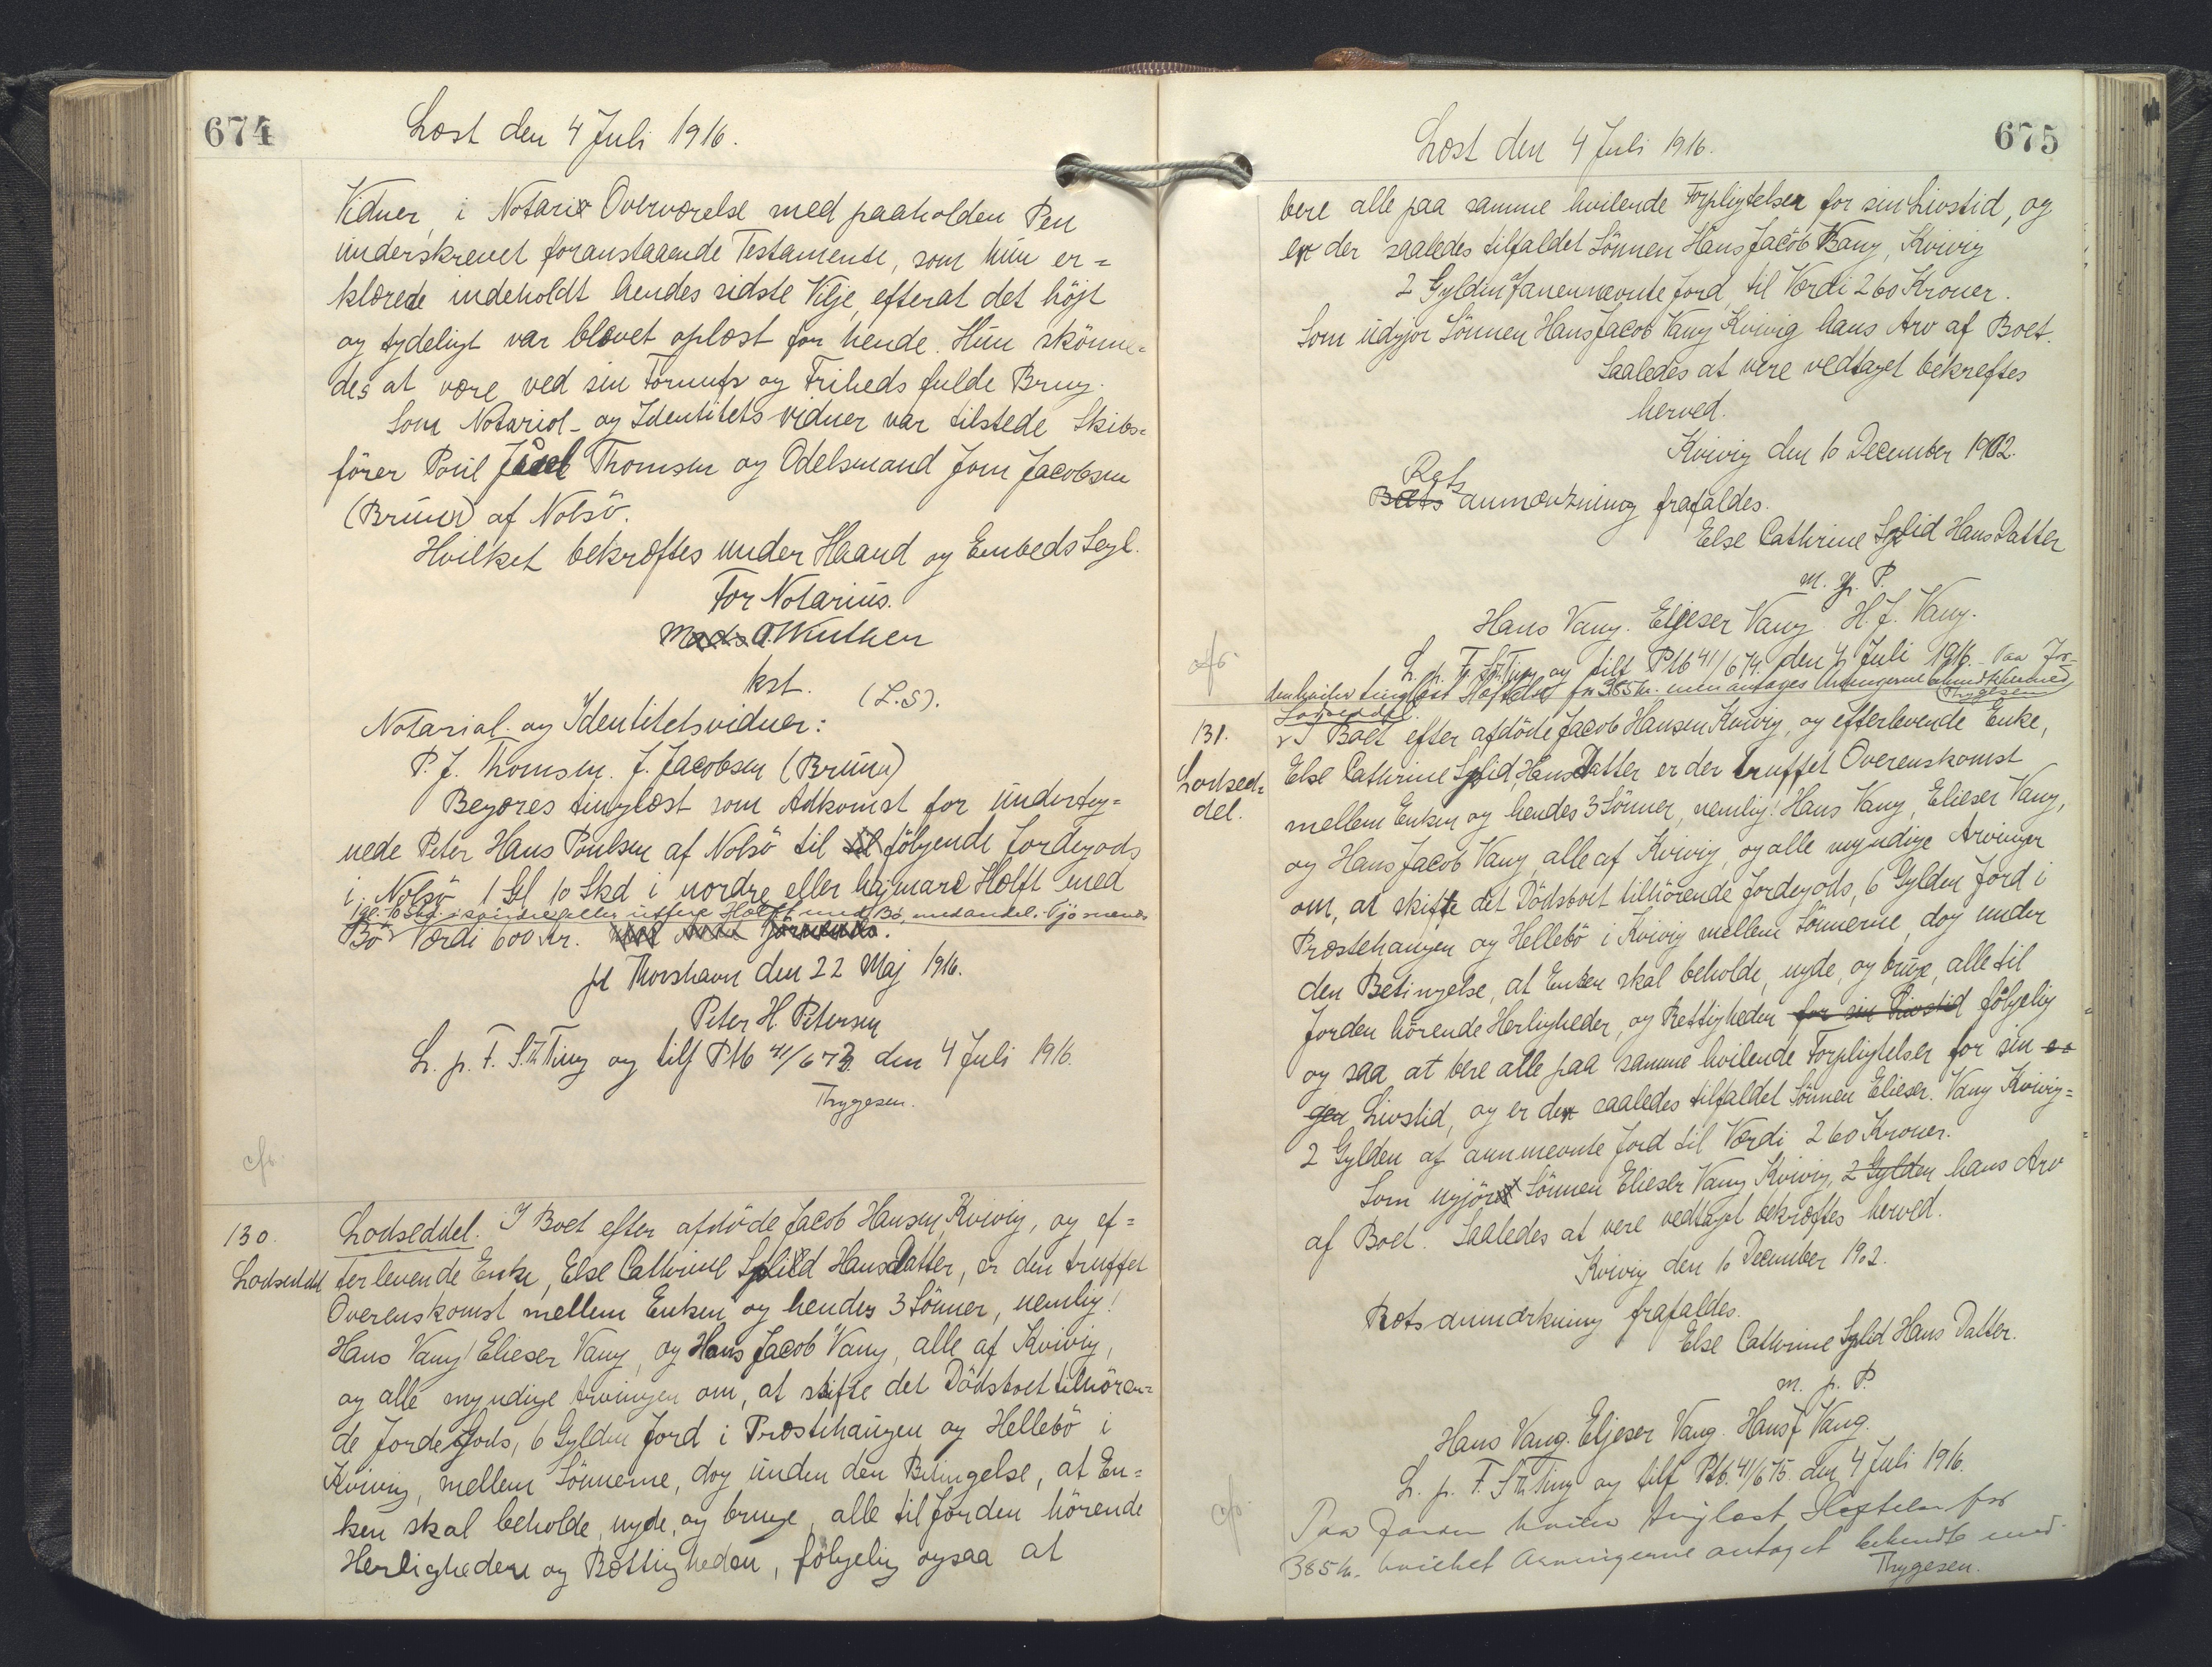 674
Læst den 4 Juli 1916.
Vidner, i Notarii Overværelse med paaholden Pen
underskrevet foranstaaende Testamente, som hun er=
klærede indeholdt hendes sidste Vilje, efterat det højt
og tydeligt var blevet oplæst for hende. Hun skönne=
des at være ved sin Fornufts og Friheds fulde Brug.
Som Notarial- og Identitets vidner var tilstede Skibs=
förer Poul Thomsen og Odelsmand Joen Jacobsen
(Bruun) af Nolsö.
Hvilket bekræftes under Haand og Embeds Segl.
For Notarius.
Winther
kst.
(L.S).
Notarial- og Identitetsvidner:
P. J. Thomsen. J. Jacobsen (Bruun)
Begæres tinglæst som Adkomst for underteg=
nede Peter Hans Poulsen af Nolsö til fölgende Jordegods
i Nolsö 1 Gl 10 Skd i nordre eller hajmare Hælft med
1 Gl. 10 Skd. i söndre eller uttere Hælft med Bö,
Bö Værdi 600 Kr.
pt Thorshavn den 22 Maj 1916.
Peter H. Petersen
L. p. F. S. Th Ting og tilf Ptb 41/673 den 4 Juli 1916.
Thygesen.
cfr.
130.
Lodseddel
Lodseddel. I Boet efter afdöde Jacob Hansen, Kvivig, og ef=
terlevende Enke, Else Cathrine Sylid Hans Datter, er den truffet
Overenskomst mellem Enken og hendes 3 Sönner, nemlig!
Hans Vang, Elieser Vang, og Hans Jacob Vang, alle af Kvivig,
og alle myndige Arvingen om, at skifte det Dödsboet tilhören=
de JordeGods, 6 Gylden Jord i Præstehaugen og Hellebö i
Kvivig, mellem Sönnerne, dog under den Betingelse, at En=
ken skal beholde, nyde, og bruge, alle til Jorden hörende
Herligheder og Rettigheden, fölgelig ogsaa at
675
Læst den 4 Juli 1916.
bere alle paa samme hvilende Forpligtelser for sin Livstid, og
er der saaledes tilfaldet Sönnen Hans Jacob Vang, Kvivig
2 Gylden af anernævnte Jord til Værdi 260 Kroner.
Som udgjör Sönnen Hans Jacob Vang Kvivig hans Arv af Boet.
Saaledes at vere vedtaget bekreftes
herved.
Kvivig den 10 December 1902.
Rets
Bæts anmærkning frafaldes.
Else Cathrine Sylid Hans Datter
m. p. P.
Hans Vang. Eljeser Vang. H. J. Vang.
cfr.
L. p. F. S. Th Ting og tilf Ptb 41/674. den 4 Juli 1916. Paa Jor-
den hviler tinglæst Hæftelse for 385 Kr. men antages Arvingerne bekendt hermed
Thygesen
131.
Lodsed=
del.
Lodseddel.
I Boet efter afdöde Jacob Hansen Kvivig, og efterlevende Enke,
Else Cathrine Sylid, Hans Datter er der truffet Overenskomst
mellem Enken og hendes 3 Sönner, nemlig! Hans Vang, Elieser Vang,
og Hans Jacob Vang, alle af Kvivig, og alle myndige Arvinger
om, at skifte det Dödsboet tilhörende Jordegods, 6 Gylden Jord i
Præstehaugen og Hellebö i Kvivig mellem Sönnerne, dog under
den Betingelse, at Enken skal beholde, nyde, og bruge, alle til
Jorden hörende Herligheder, og Rettigheden for sin Livstid fölgelig
og saa at bere alle paa samme hvilende Forpligtelser for sin eg
gen Livstid, og er der saaledes tilfaldet Sönnen Elieser. Vang Kvivig=
2 Gylden af annævnte Jord til Værdi 260 Kroner.
Som ugjör Sönnen Elieser Vang Kvivig, 2 Gylden hans Arv
af Boet. Saaledes at vere vedtaget bekræftes herved.
Kvivig den 10 December 1902.
Retsanmærkning frafaldes.
Else Cathrine Sylid Hans Datter.
m. p. P.
Hans Vang. Eljeser Vang. Hans J Vang.
L. p. F. S Th Ting og tilf Ptb. 41/675. den 4 Juli 1916.
cfr.
Paa Jorden hviler tinglæst Hæftelse for
385 Kr. hvilket Arvingerne antaget bekendt med
Thygesen.